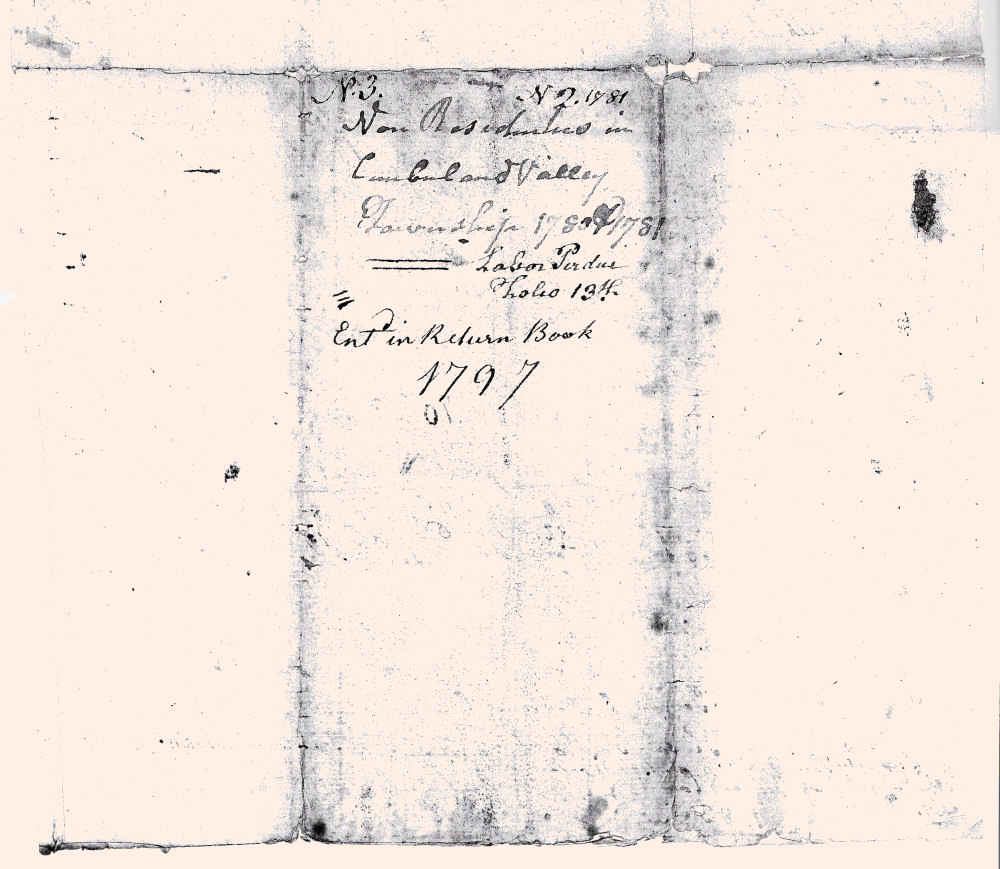 No. 3. No 2. 1781
Non Residentes in
Cumberland Valley
Township 1780 & 1781
Labor Perdue
Folio 13th
Entd in Return Book
1797